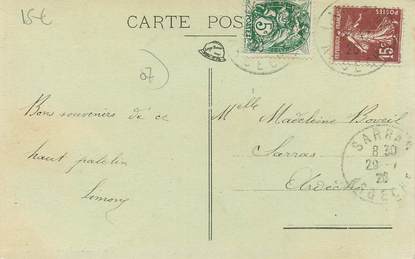 15€
CARTE POS
5
POSTES
15c
07
Bons souvenirs de ce
haut patelin
Limony
Melle Madeleine
Sarras
Ardèche
SARRAS
8 30
29
26
ARDECHE